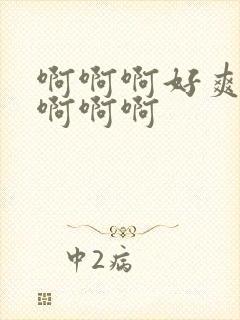 啊啊啊好爽
啊啊啊
中2病